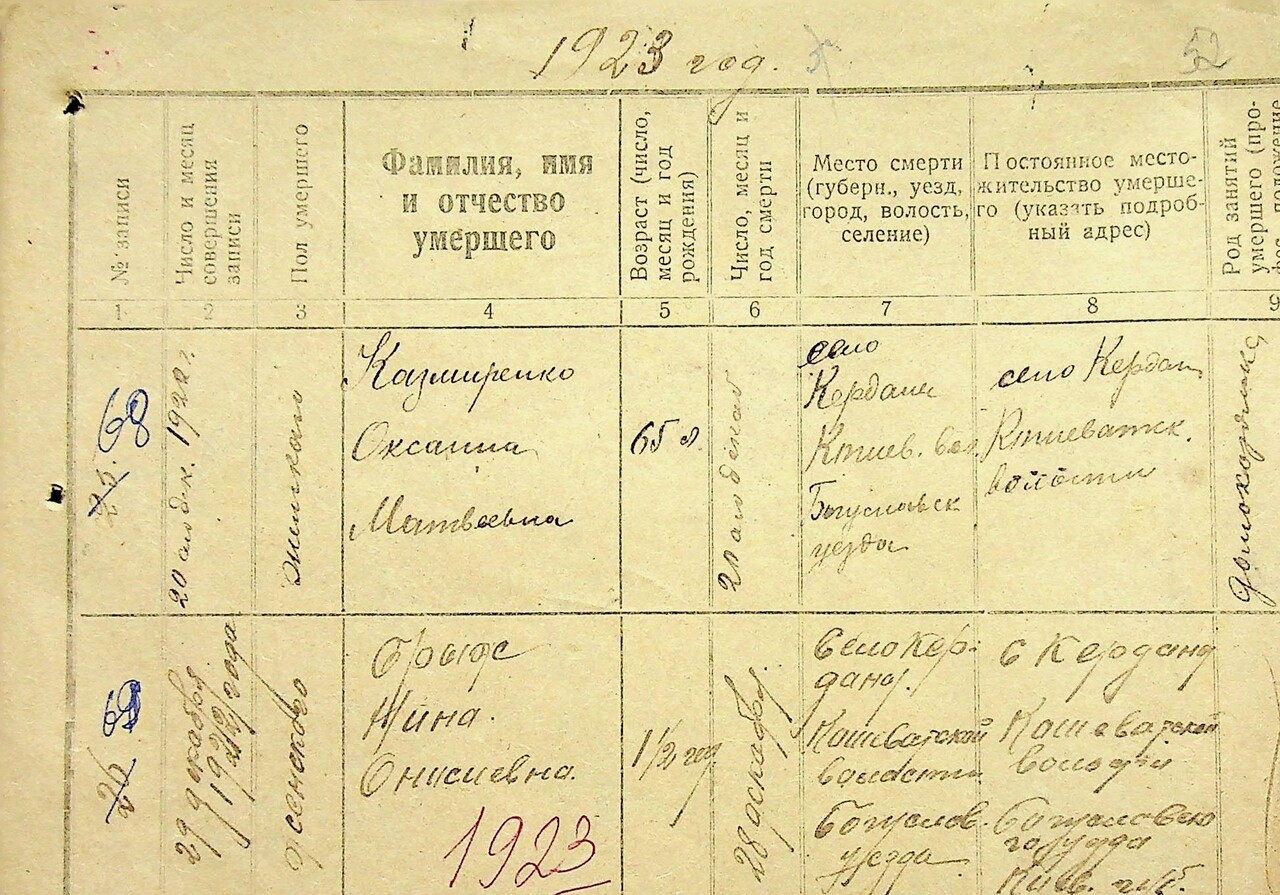 1923 год.
52
№ записи
Число и месяц
совершения
записи
Пол умершего
Фамилия, имя
и отчество
умершего
Возраст (число,
месяц и год
рождения)
Число, месяц и
год смерти
Место смерти
(губерн., уезд,
город, волость,
селение)
Постоянное место-
жительство умерше-
го (указать подроб-
ный адрес)
Род занятий
умершего (про-
1 2 3 4 5 6 7 8 9
25. 68
1922 г.
женского
Казмиренко
Оксанна
Матвеевна
65 л
20
село
Кердани
Богуславск
уезда
село Кердан
волости
26 69
29 декабря
1922 года
женского
Нина.
Онисиевна.
1/2 год
28 декабря
Село Кер-
дани.
Кашеватской
волости
Богуслов.
уезда
с Кердани
Кашеватской
волости
Богусловско
го уезда
Киев. губ.
1923